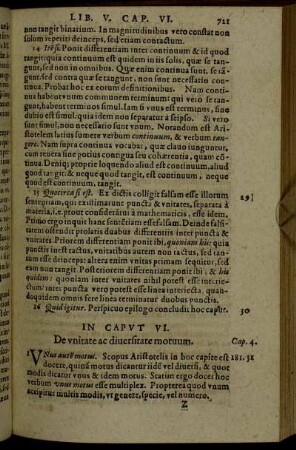 LIB. V. CAP. VI. 721
non tangit binatium. In magnitudinibus vero constat non
solum reperiri deinceps, sed etiam contactum.
14 Ponit differentiam inter continuum & id quod
tangit: quia continuum est quidem in iis solis, quæ se tan-
gunt, sed non in omnibus. Quæ enim continua sunt, se tā-
gunt, sed contra quæ se tangunt, non sunt necessario con-
tinua. Probat hoc ex eorum definitionibus. Nam conti-
nua habent vnum communem terminum: qui vero se tan-
gunt, habent terminos simul. Iam si vnus est terminus, seip-
so est simul: quia idem non separatur à seipso. Si vero
sunt simul, non necessario sunt vnum. Notandum est Ari-
stotelem latius sumere verbum continuum, & verbum tan-
gere. Nam supra continua vocabat, quæ clauo iunguntur,
cum reuera sine potius contigua seu cohærentia, quam cō-
tinua. Deniq; proprie loquendo aliud est continuum, aliud
quod tangit: & neque quod tangit, est continuum, neque
quod est continuum, tangit.
Quocirca si est. Ex dictis colligit falsam esse illorum 29
sententiam, qui existimarunt puncta & vnitates, separata à
materia, i. e. prout considerātur à mathematicis, esse idem.
Primo ergo inquit hanc sententiam esse falsam. Deinde falsi-
tatem ostendit prolatis duabus differentiis inter puncta &
vnitates. Priorem differentiam ponit ibi, quoniam his: quia
punctis inest tactus, vnitatibus autem non tactus, sed tan-
tum esse deinceps: altera enim vnitas primam sequitur, sed
eam non tangit. Posteriorem differentiam ponit ibi, & his
quidam: quoniam inter vnitates nihil potest esse interie-
ctum: inter puncta vero potest esse linea interiecta, quan-
doquidem omnis fere linea terminatur duobus punctis.
16 Quid igitur. Perspicuo epilogo concludit hoc caput. 30
IN CAPVT VI.
De vnitate ac diuersitate motuum. Cap. 4.
1 VNus autē motus. Scopus Aristotelis in hoc capite est 181. 31
docere, quibus motus dicantur iidē vel diuersi, & quot
modis dicatur vnus & idem motus. Statim ergo docet hoc
verbum vnus motus esse multiplex. Propterea quod vnum
accipitur multis modis, vt genere, specie, vel numero.
Z